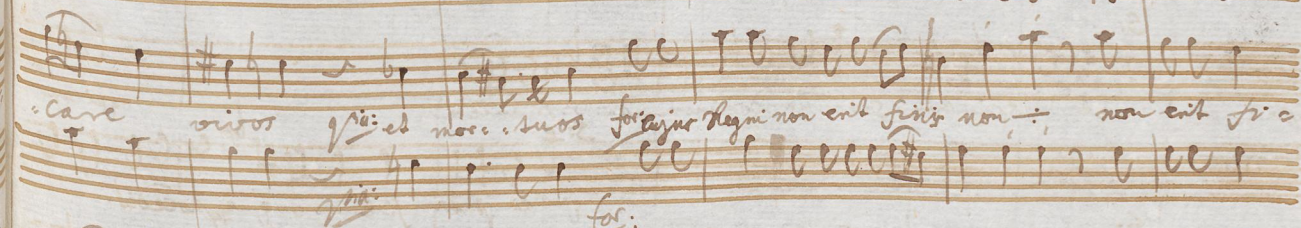 -care vivos pia: et mor-- tuos for: cujus Regni non erit finis non -÷ non erit fi-
pia:
for: